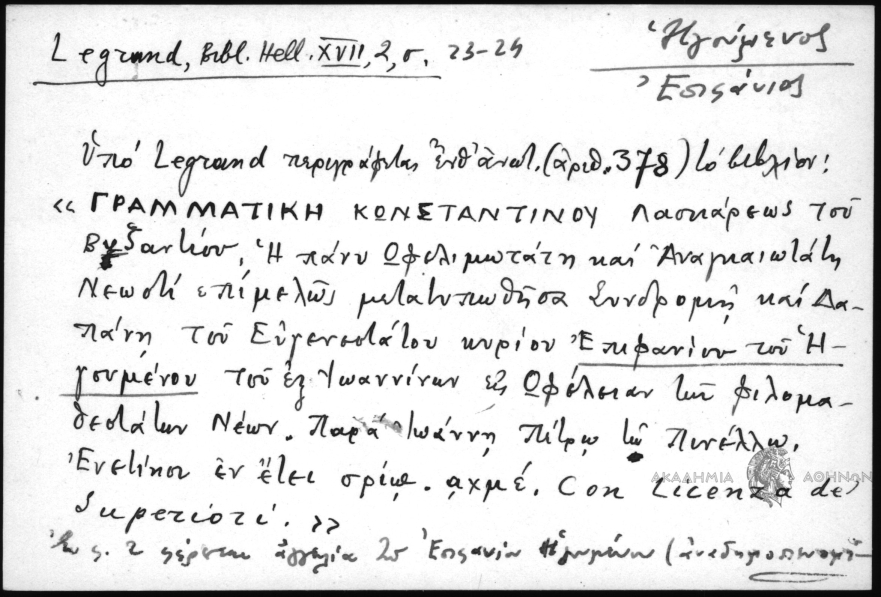 Legrand, Bibl. Hell. XVII, 2, σ. 23-24
Ἡγούμενος
Ἐπιφάνιος
Ὑπό Legrand περιγράφεται ἐνθ' ἀνωτ. (ἀριθ. 378) τό βιβλίον:
« ΓΡΑΜΜΑΤΙΚΗ ΚΩΝΣΤΑΝΤΙΝΟΥ Λασκάρεως τοῦ
Βυζαντίου. Ἡ πάνυ Ὠφελιμωτάτη καί Ἀναγκαιωτάτη
Νεωστί ἐπιμελῶς μετατυπωθῆσα Συνδρομῇ καί Δα-
πάνῃ τοῦ Εὐγενεστάτου κυρίου Ἐπιφανίου τοῦ Ἡ-
γουμένου τοῦ ἐξ Ἰωαννίνων εἰς Ὠφέλειαν τῶν φιλομα-
θεστάτων Νέων. Παρά Ἰωάννῃ Πέτρῳ τῷ Πινέλλῳ.
Ἐνετίησι ἐν ἔτει αχμέ. Con Licenza de'
Superiori. »
σ. 2 φέρεται ἀγγελία Ἐπιφανίου Ἡγουμένου
ΑΚΑΔΗΜΙΑ ΑΘΗΝΩΝ